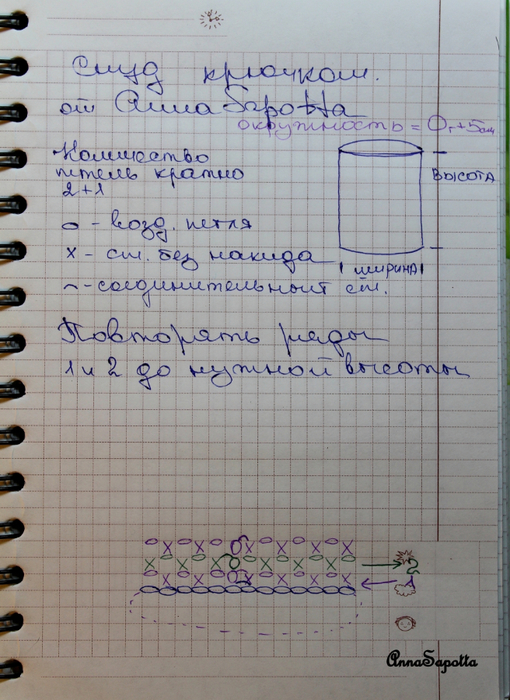 Снуд крючком.
от AnnaSapotta
окружность = Ог+5см
Количество
петель кратно
2+1
высота
о - возд. петля
х - ст. без накида
ширина
⌢ - соединительный ст.
Повторять ряды
1 и 2 до нужной высоты
2
1
AnnaSapotta